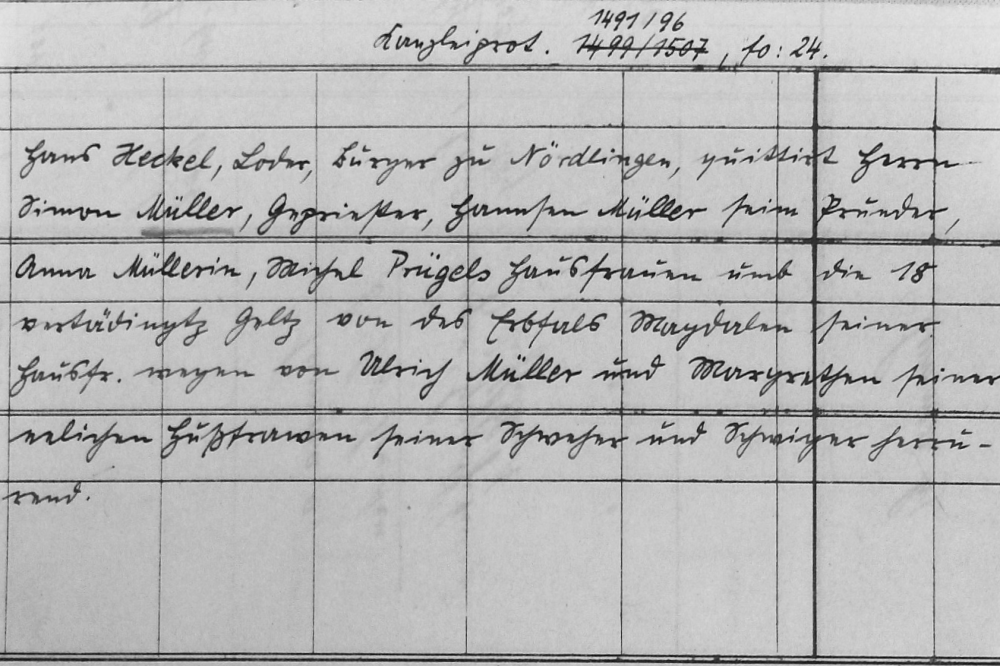 1491/96
Kanzleiprot. 1499/1507, fo: 24.
Hans Heckel, Loder, Bürger zu Nördlingen, quittirt Herrn
Simon Müller, Gepriester, Hannsen Müller seim Prueder,
Anna Müllerin, Michel Prügels Hausfrauen umb die 18
vertädingtz Geltz von des Erbfals Magdalen seiner
Hausfr. wegen von Ulrich Müller und Margrethen seiner
eelichen Hußfrawen seiner Schweher und Schwiger herrü-
rend.